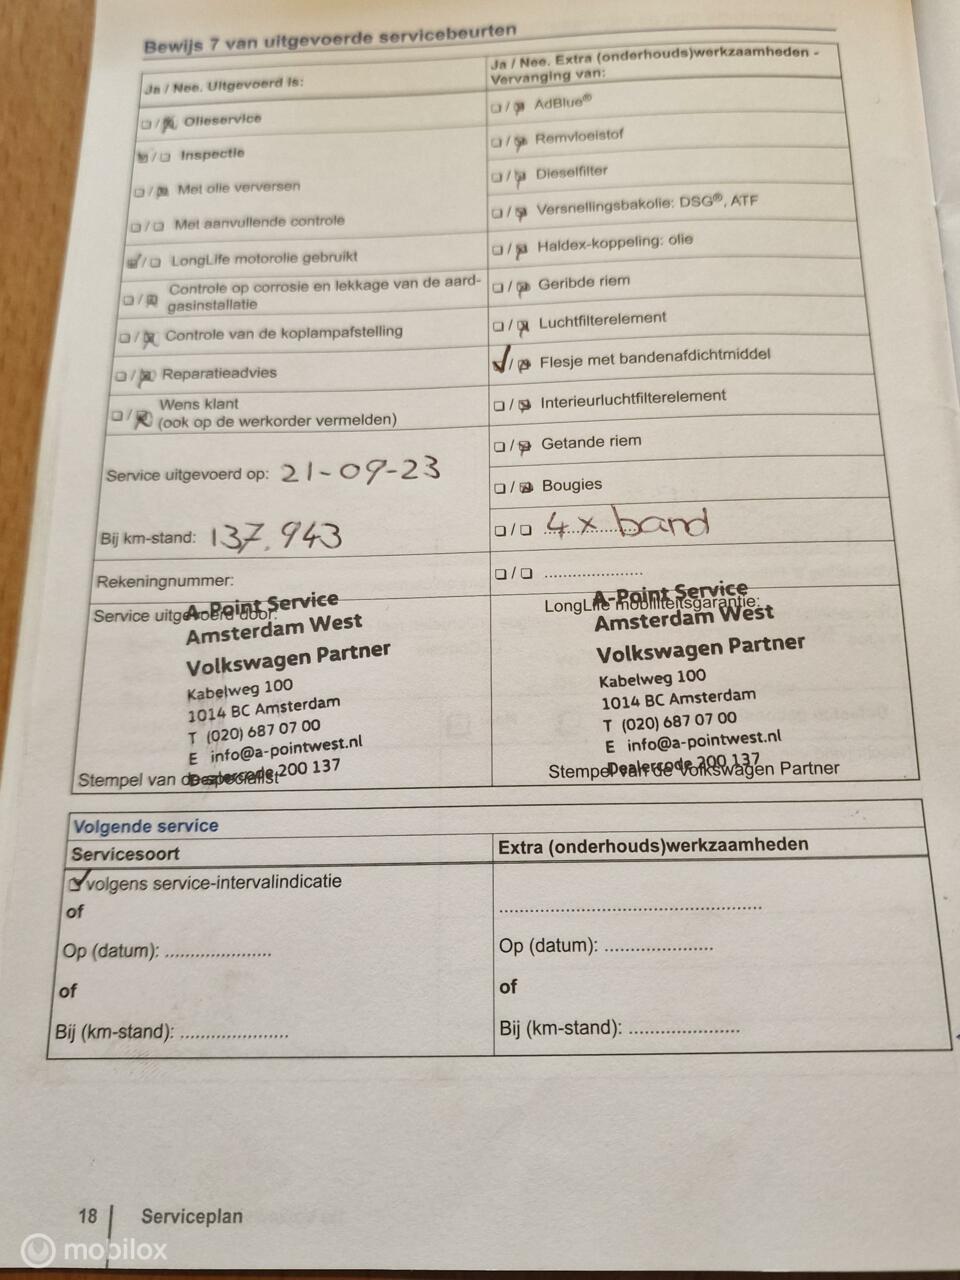 Bewijs 7 van uitgevoerde servicebeurten
Ja / Nee. Uitgevoerd is:
☐ / ☒ Olieservice
☒ / ☐ Inspectie
☐ / ☒ Met olie verversen
☐ / ☐ Met aanvullende controle
☒ / ☐ LongLife motorolie gebruikt
☐ / ☒ Controle op corrosie en lekkage van de aard-
gasinstallatie
☐ / ☒ Controle van de koplampafstelling
☐ / ☒ Reparatieadvies
☐ / ☒ Wens klant
(ook op de werkorder vermelden)
Service uitgevoerd op: 21-09-23
Bij km-stand: 137.943
Rekeningnummer:
Service uitgevoerd door:
A-Point Service
Amsterdam West
Volkswagen Partner
Kabelweg 100
1014 BC Amsterdam
T (020) 687 07 00
E info@a-pointwest.nl
Dealercode 200 137
Stempel van de specialist
Ja / Nee. Extra (onderhouds)werkzaamheden -
Vervanging van:
☐ / ☒ AdBlue®
☐ / ☒ Remvloeistof
☐ / ☒ Dieselfilter
☐ / ☒ Versnellingsbakolie: DSG®, ATF
☐ / ☒ Haldex-koppeling: olie
☐ / ☒ Geribde riem
☐ / ☒ Luchtfilterelement
☑ / ☒ Flesje met bandenafdichtmiddel
☐ / ☒ Interieurluchtfilterelement
☐ / ☒ Getande riem
☐ / ☒ Bougies
☐ / ☐ 4x band
☐ / ☐ ......................
LongLife mobiliteitsgarantie:
A-Point Service
Amsterdam West
Volkswagen Partner
Kabelweg 100
1014 BC Amsterdam
T (020) 687 07 00
E info@a-pointwest.nl
Dealercode 200 137
Stempel van de Volkswagen Partner
Volgende service
Servicesoort
☑ volgens service-intervalindicatie
of
Op (datum): ......................
of
Bij (km-stand): ......................
Extra (onderhouds)werkzaamheden
......................................................
Op (datum): ......................
of
Bij (km-stand): ......................
18 | Serviceplan
mobilox